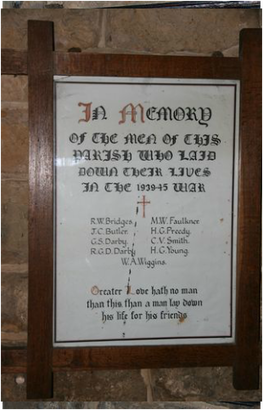 In Memory
OF THE MEN OF THIS
PARISH WHO LAID
DOWN THEIR LIVES
IN THE 1939-45 WAR
R.W. Bridges. M.W. Faulkner.
J.C. Butler. H.G. Preedy.
G.S. Darby. C.V. Smith.
R.G.D. Darby. H.G. Young.
W.A. Wiggins.
Greater Love hath no man
than this than a man lay down
his life for his friends